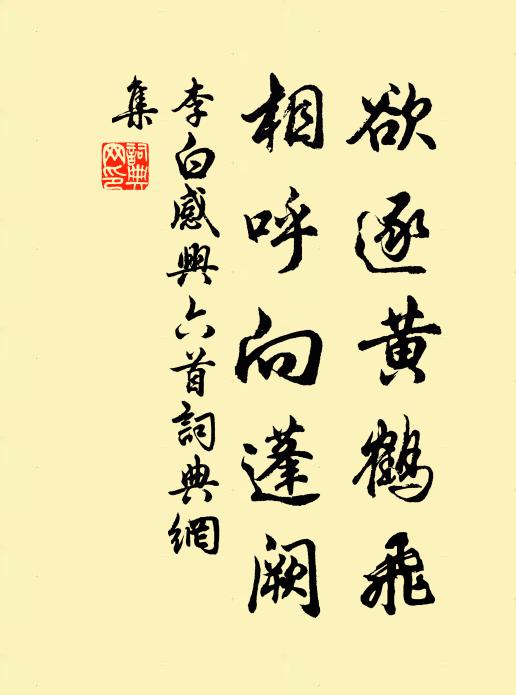 欲逐黄鶴飛
相呼向蓬阙
李白感興六首詞典網
集
詞典
网印